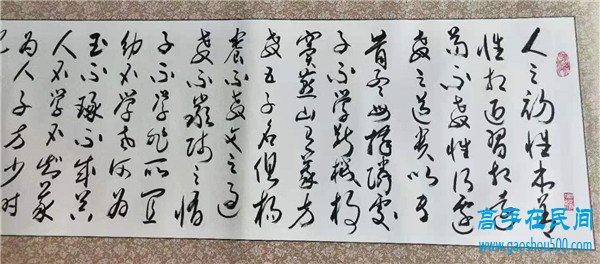 人之初性本善
性相近習相遠
苟不教性乃遷
教之道貴以專
昔孟母擇鄰處
子不學斷機杼
竇燕山有義方
教五子名俱揚
養不教父之過
教不嚴師之惰
子不學非所宜
幼不學老何為
玉不琢不成器
人不學不知義
為人子方少時
高手在民间
www.gaoshou500.com